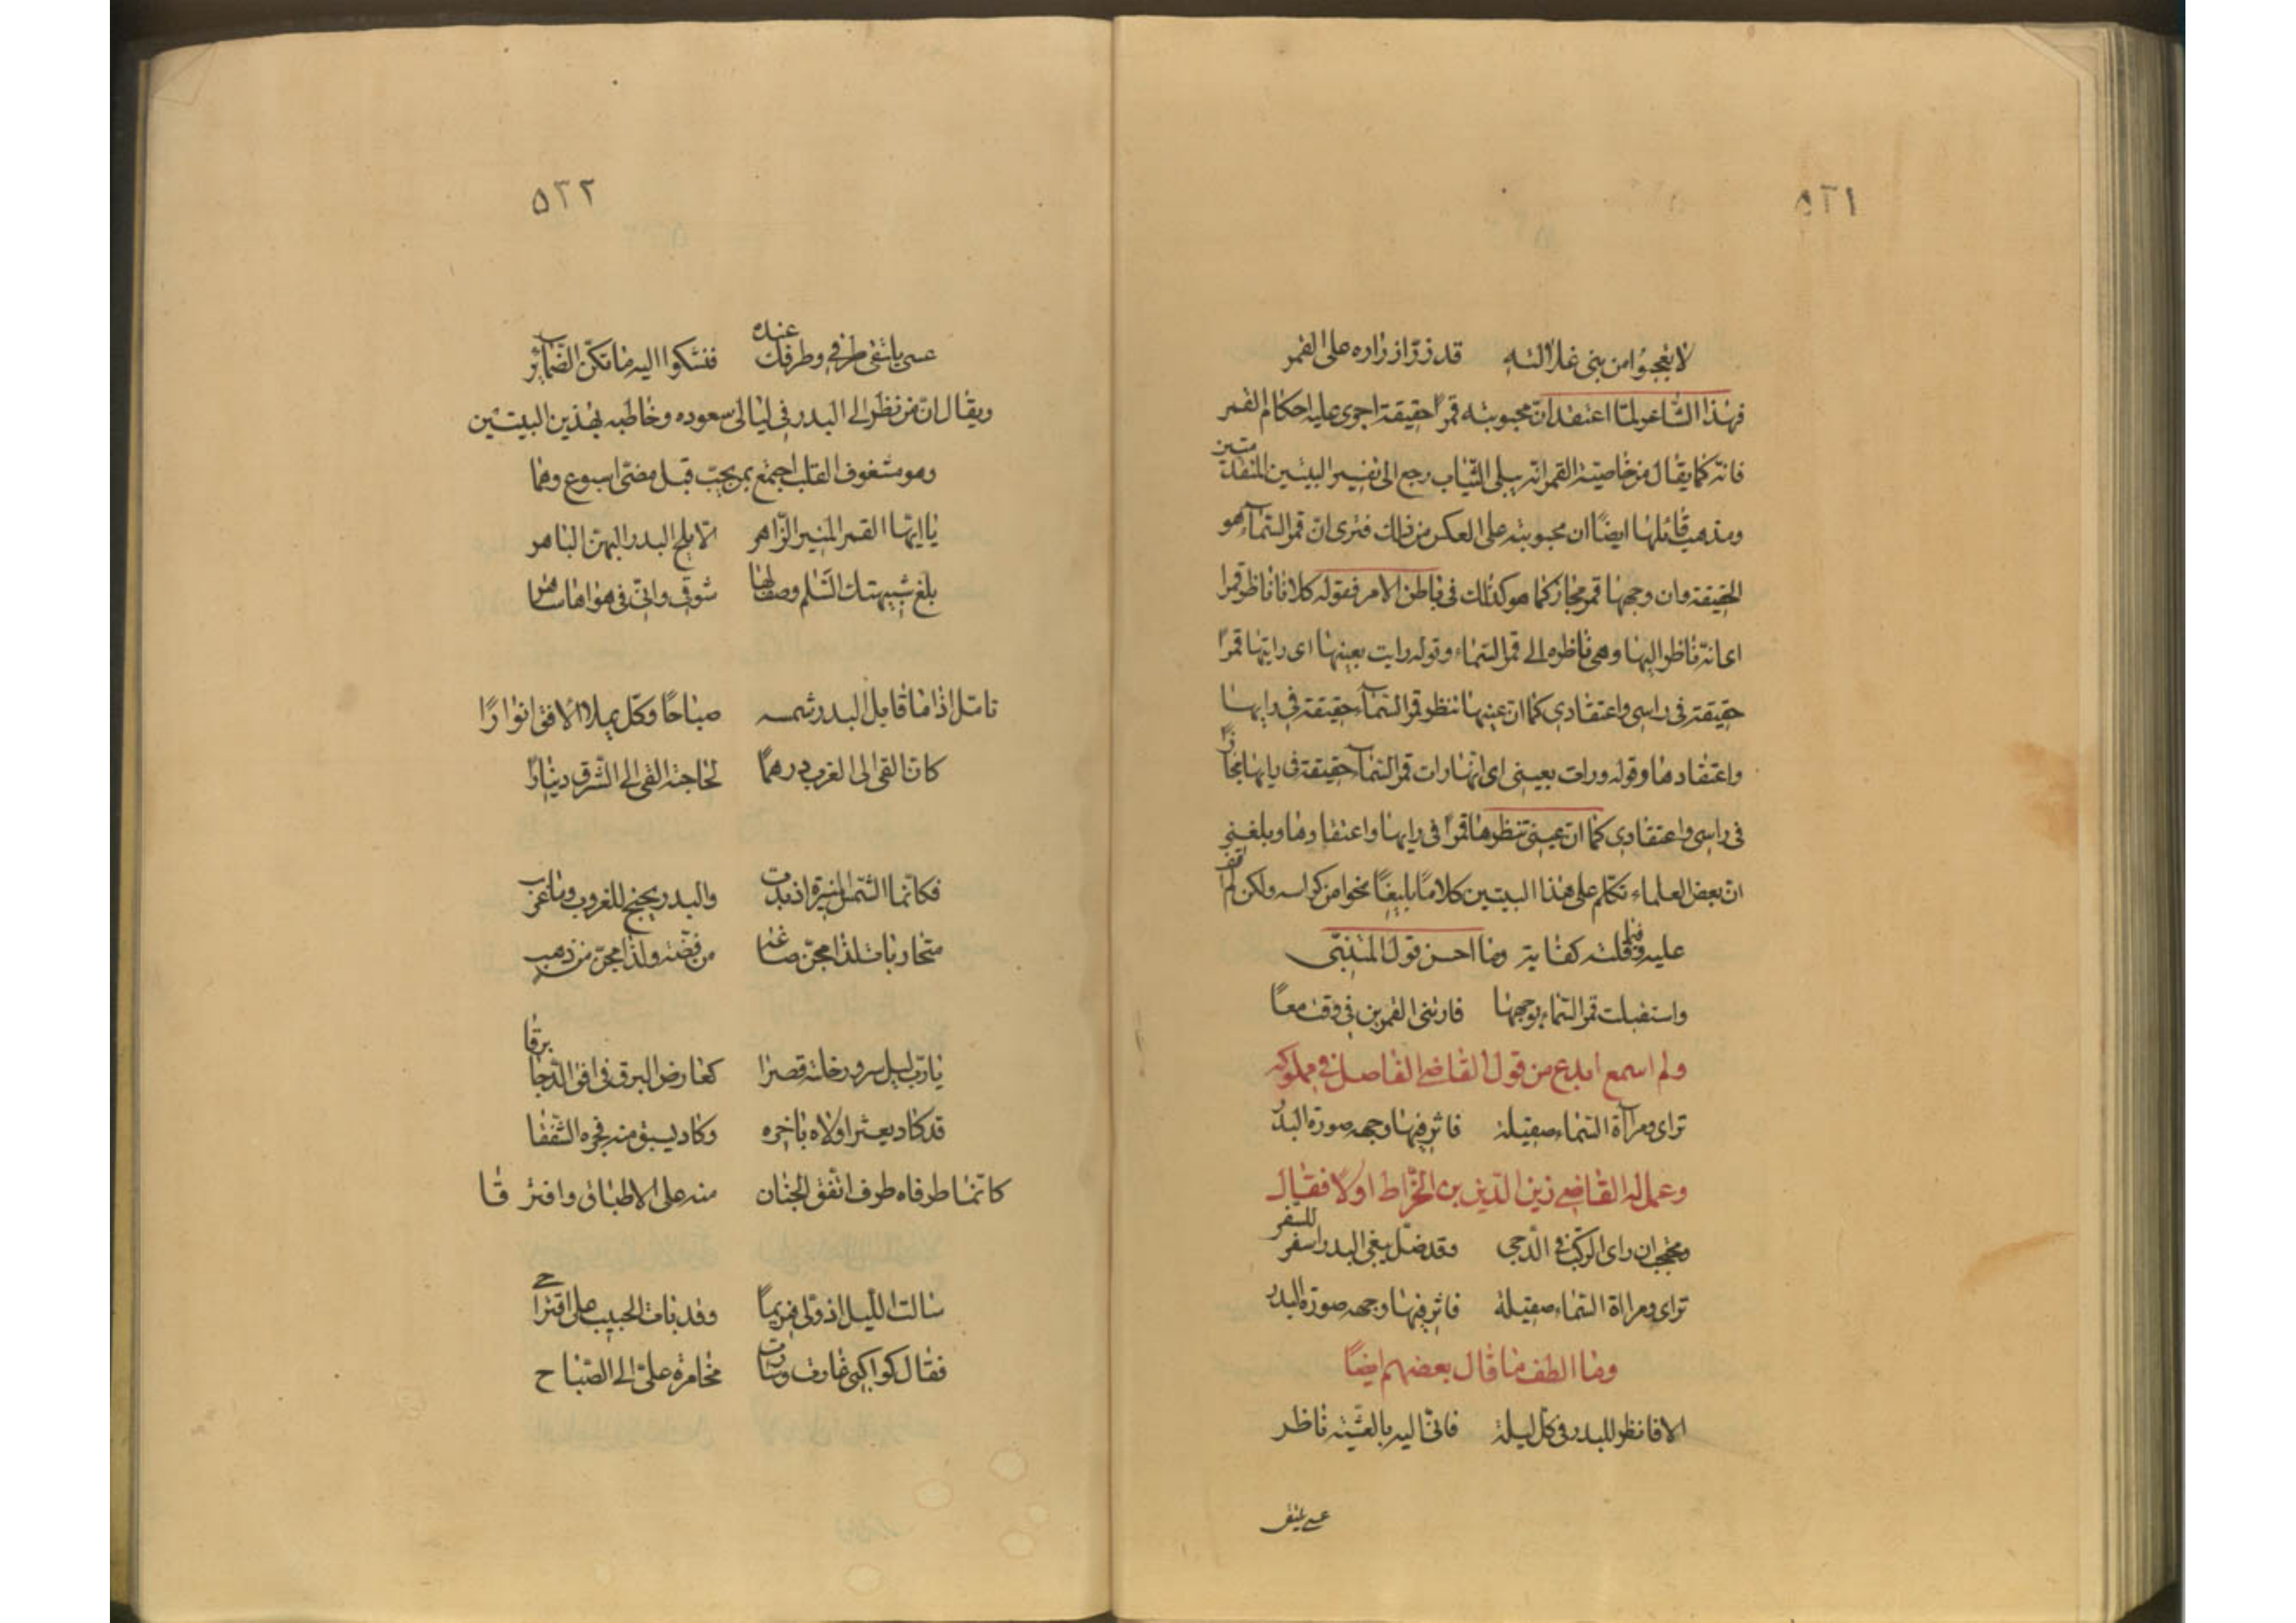 ٥٢١
لا تعجبوا من بلى غلالته قد زر ازراره على القمر
فهذا الشاعر لما اعتقد ان محبوبته قمرا حقيقة اجرى عليه احكام القمر
فانه كما يقال من خاصية القمر انه يبلى الثياب رجع الى تفسير البيتين المتقدمتين
ومذهب قائلها ايضا ان محبوبته على العكس من ذلك فترى ان قمر السماء هو
الحقيقة وان وجهها قمر مجاز كما هو كذلك فى باطن الامر فقوله كلانا ناظر قمرا
اى انه ناظر اليها وهى ناظره الى قمر السماء وقوله رايت بعينها اى رايتها قمرا
حقيقة فى راسى واعتقادى كما ان عينها تنظر قمر السماء حقيقة فى رايها
واعتقادها وقوله ورات بعينى اى انها رات قمر السماء حقيقة فى رايها مجازا
فى راسى واعتقادى كما ان عينى تنظرها قمرا فى رايها واعتقادها وبلغنى
ان بعض العلماء تكلم على هذا البيتين كلاما بليغا نحوا من كراسه ولكن لم اقف
عليه وفيما قلته كفاية وما احسن قول المتنبى
واستقبلت قمر السماء بوجهها فارتنى القمرين فى وقت معا
ولم اسمع ابدع من قول القاضى الفاضل فى مملوكه
تراى ومرآة السماء صقيلة فاثر فيها وجهه صورة البدر
وعمل له القاضى زين الدين بن الخراط اولا فقال
وقد ضل يبغى البدر اسفر للسفر
تراى ومراة السماء صقيلة فاثر فيها وجهه صورة البدر
وما الطف ما قال بعضهم ايضا
الا فانظر للبدر فى كل ليلة فانى اليه بالعشية ناظر
٥٢٢
عسى يلتقى طرفى وطرفك عنده فنشكوا اليه ما تكن الضمائر
ويقال ان من نظر الى البدر فى ليالى سعوده وخاطبه بهذين البيتين
وهو مشغوف القلب اجتمع بمن يحب قبل مضى اسبوع وهما
يا ايها القمر المنير الزاهر الابلج البدر البهى الباهر
بلغ شبيهتك السلام وصف لها شوقى وانى فى هواها ساهر
تامل اذا ما قابل البدر شمسه صباحا وكل يملا الافق انوارا
كان القى الى الغرب درهما لحاجته القى الى الشرق دينارا
فكانما الشمس المنيرة اذ بدت والبدر يجنح للغروب وما غرب
متحاربان لذا مجن صاغه من فضة ولذا مجن من ذهب
يا رب ليل سرور خلته قصرا كعارض البرق فى افق الدجا برقا
قد كاد يعثر اولاه باخره وكاد يسبق منه فجره الشفقا
كانما طرفاه طرف اتفق الجفنان منه على الاطباق وافترقا
سالت الليل اذ ولى وقد بات الحبيب على اقتراحى
فقال كواكبى على الى الصباح